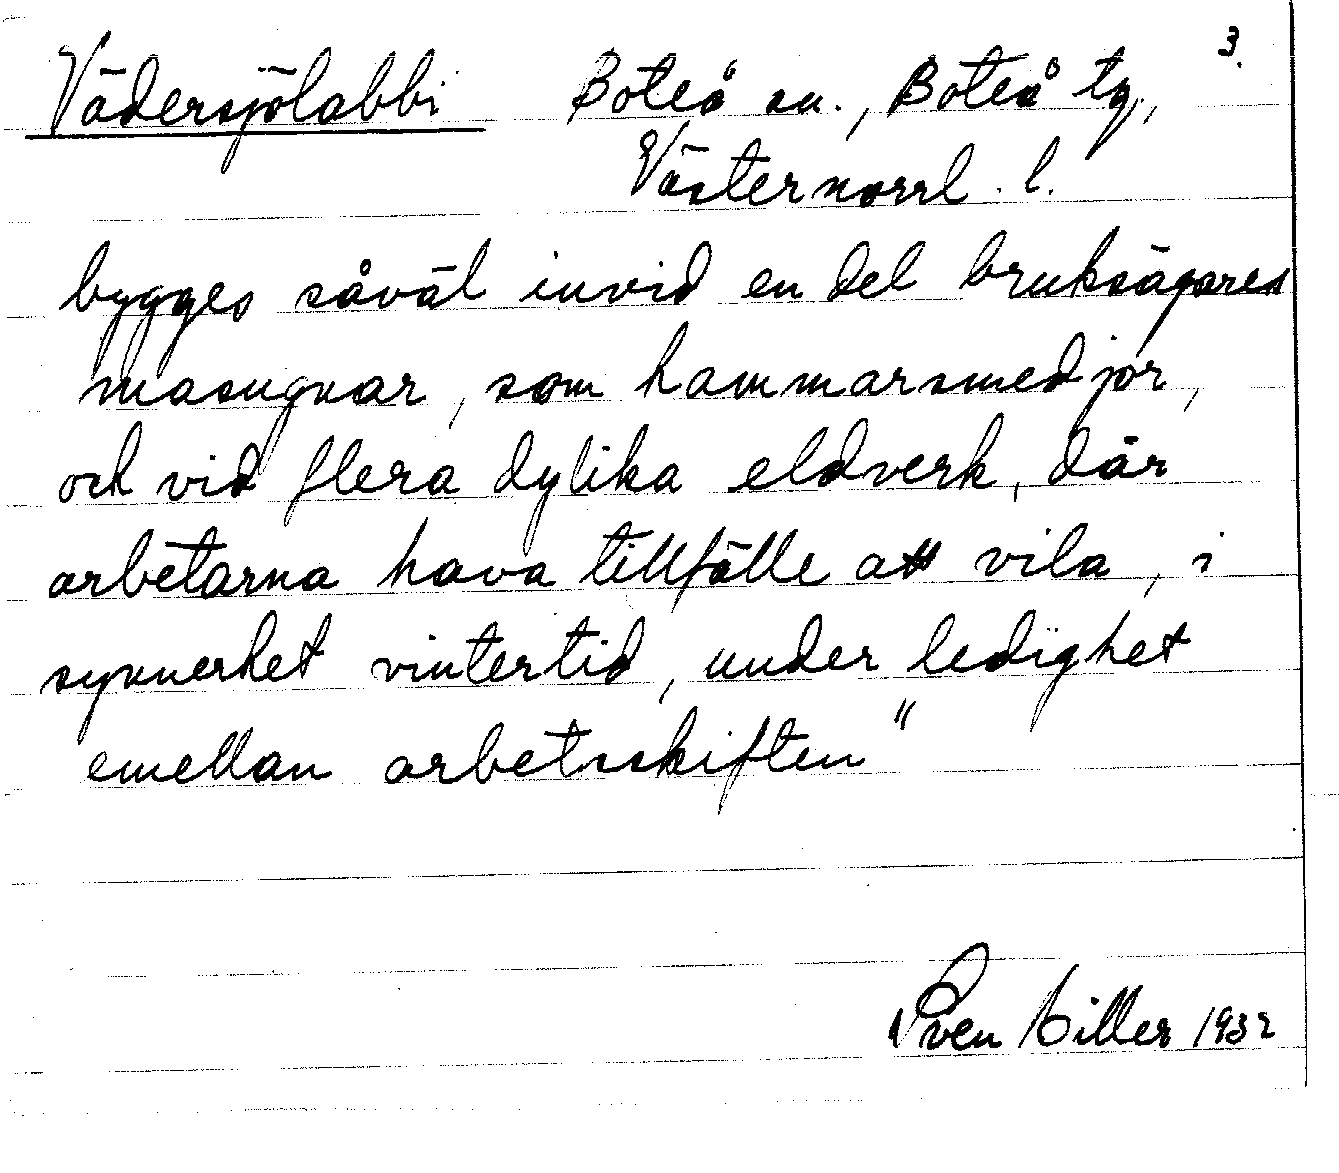 3.
Vädersjölabbi Boteå sn., Boteå tg.,
Västernorrl. l.
bygges såväl invid en del bruksägares
masugnar, som hammarsmedjor,
och vid flera dylika eldverk, där
arbetarna hava tillfälle att vila, i
synnerhet vintertid, under ledighet
emellan arbetsskiften"
Sven Hiller 1932